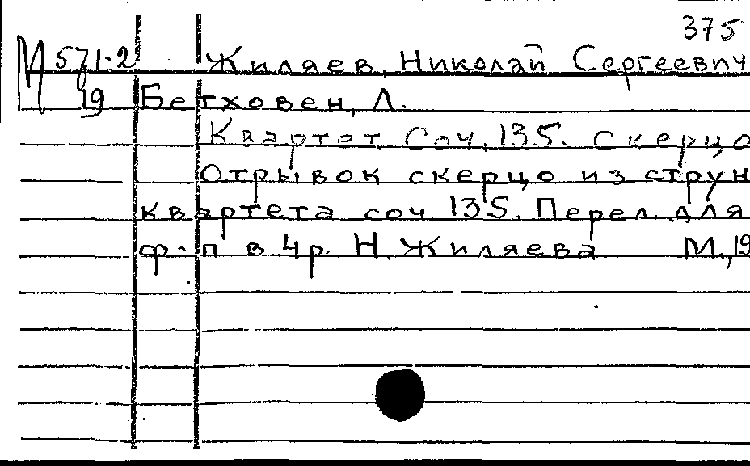 375
И 571-2 Жиляев, Николай Сергеевич
19 Бетховен, Л.
Квартет Соч. 135. Скерцо
Отрывок скерцо из струн
квартета соч 135. Перел. для
ф-п в 4р. Н. Жиляева М., 19